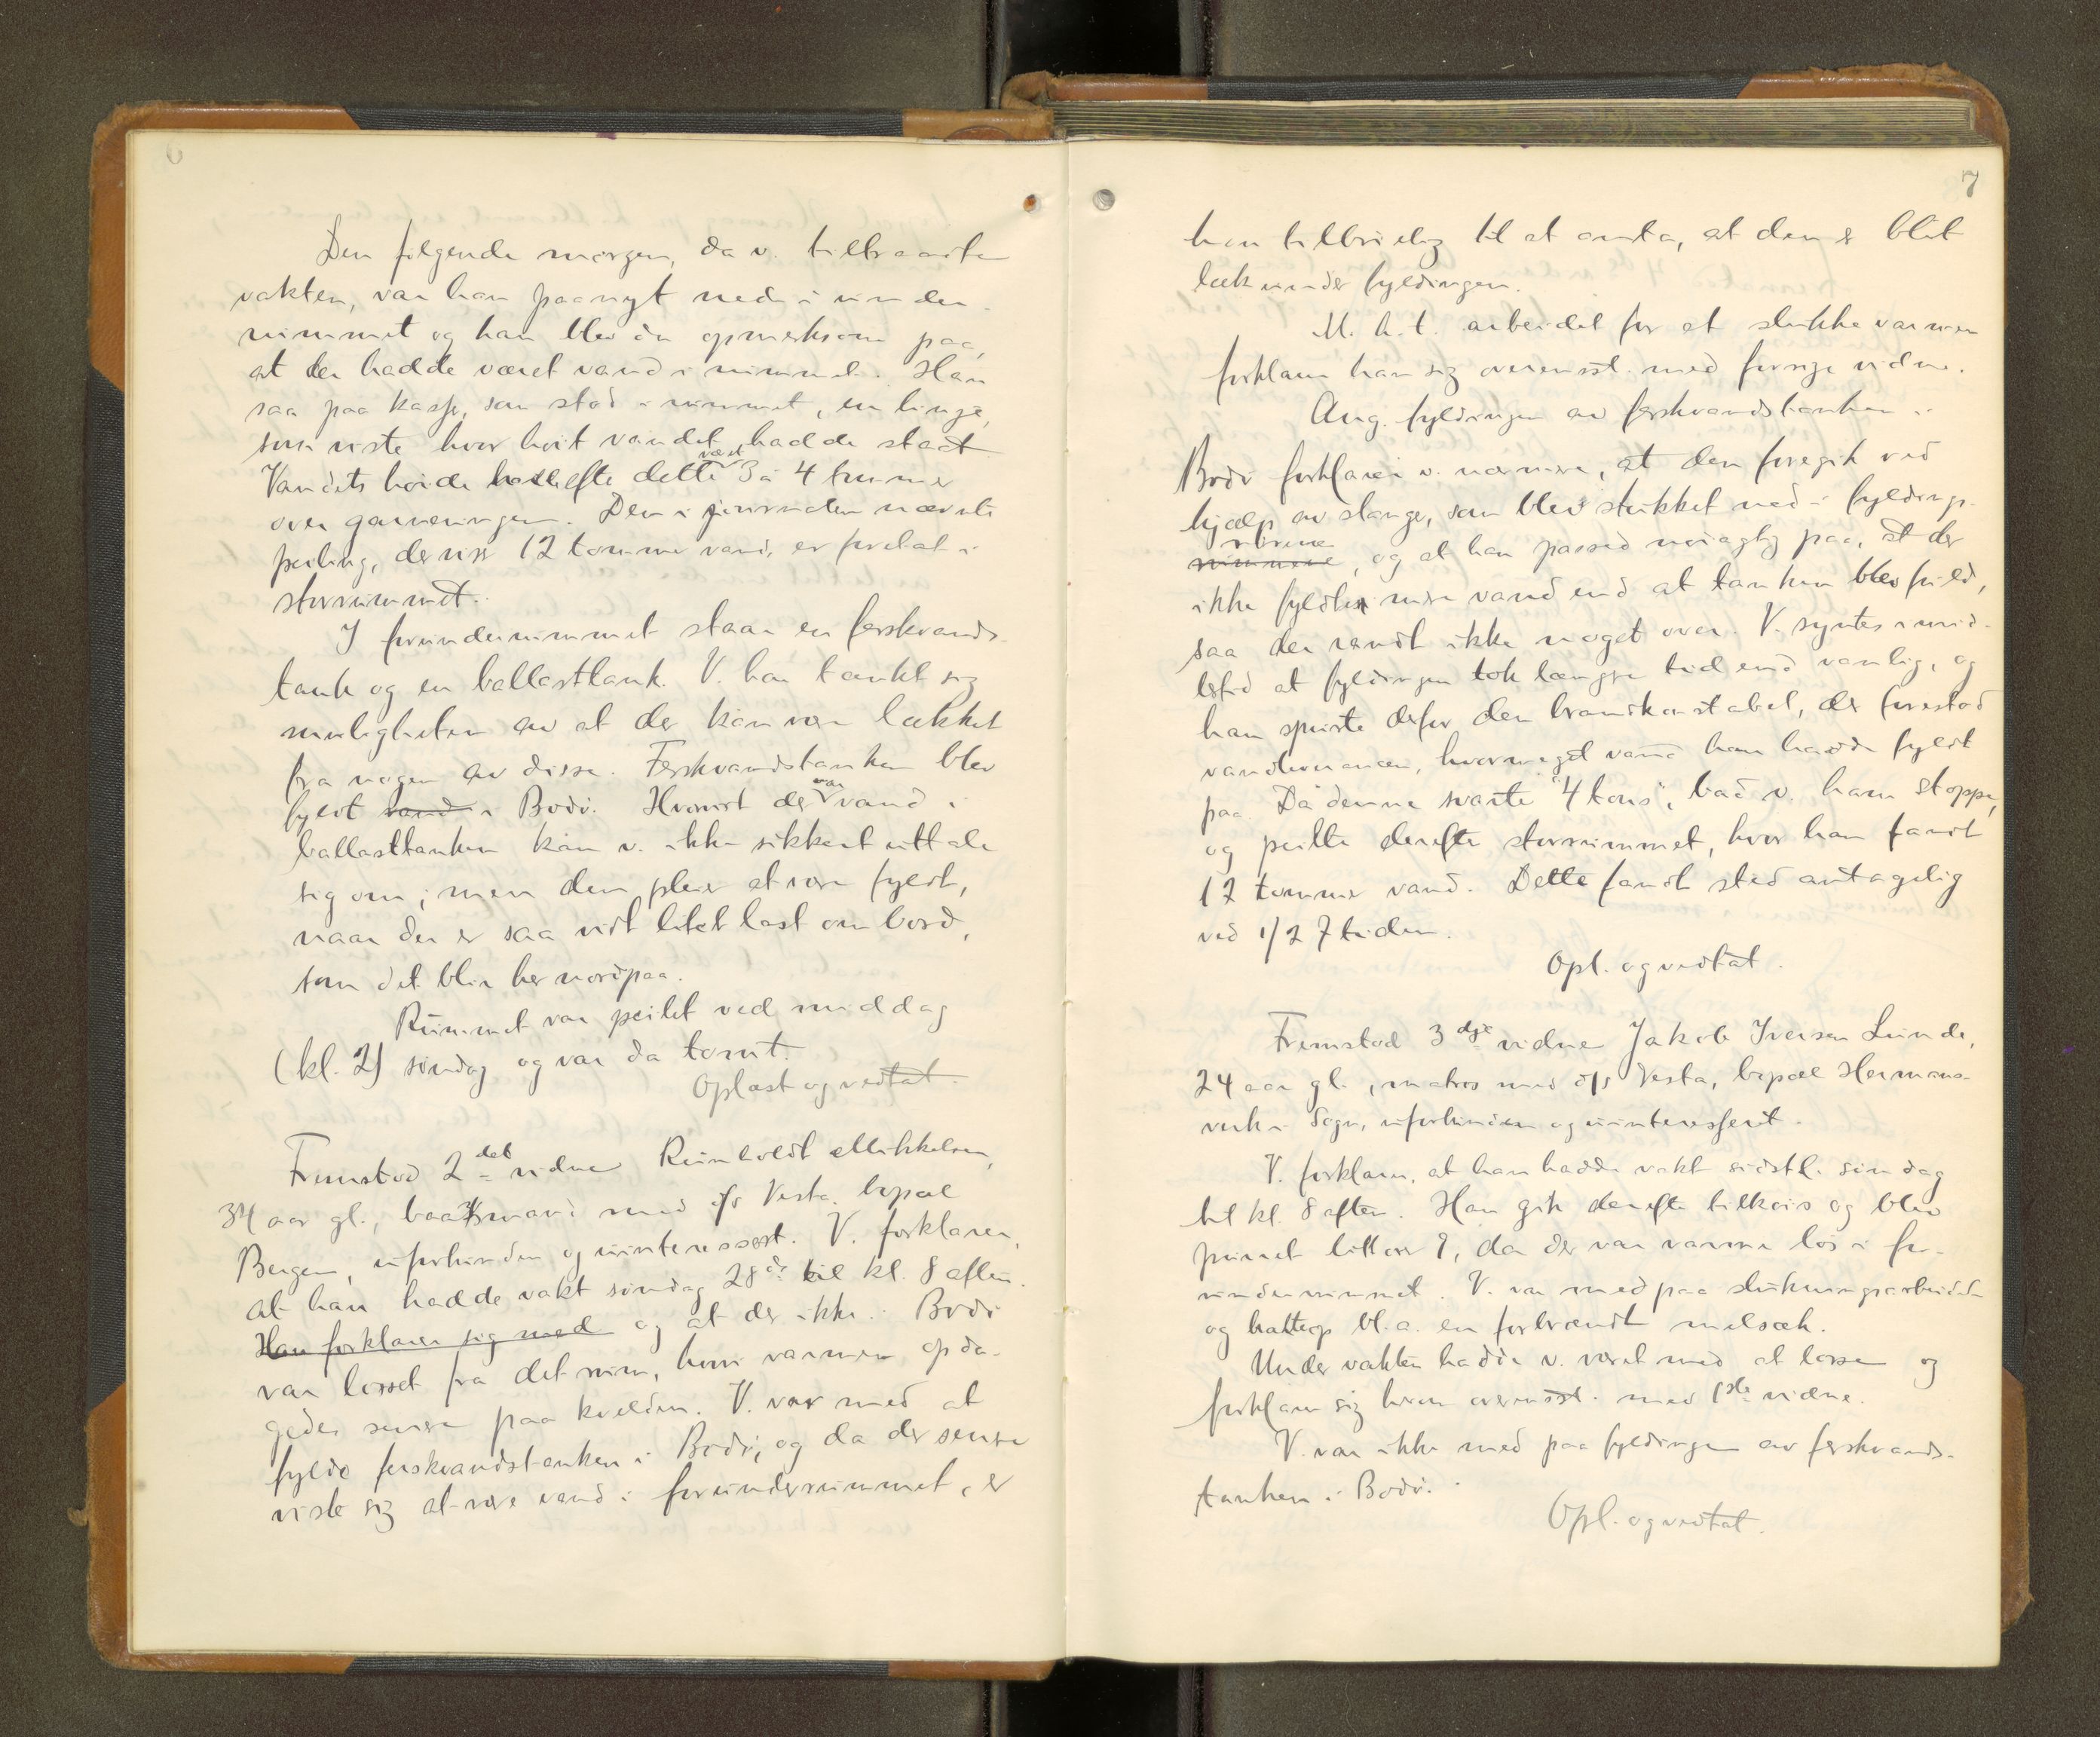 6
Den følgende morgen, da v. tiltraadte
vakten, var han paanyt nede i under
rummet og han blev da opmerksom paa,
at der hadde været vand i rummet. Han
saa paa kasse, som stod i rummet, en linje,
som viste hvor høit vandet hadde staat
Vandets høide hadde efter dette været 3 à 4 tommer
over garneringen. Den i journalen nævnte
peiling, der viser 12 tommer vand, er foretat i
storrummet.
I forunderrummet staar en ferskvands-
tank og en ballasttank. V. har tænkt sig
muligheten av at der kan være lækket
fra nogen av disse. Ferskvandstanken blev
fyldt vand i Bodø. Hvorvidt der var vand i
ballasttanken kan v. ikke sikkert uttale
sig om; men den pleier at være fyldt,
naar der er saa vidt litet last ombord,
som det blir her nordpaa.
Rummet var peilet ved middag
(kl. 2) søndag og var da tomt.
Oplæst og vedtat.
Fremstod 2det vidne Reinholdt Mikkelsen,
34 aar gl., baatsmand med d/s Vesta, bopæl
Bergen, uforbunden og uinteressert. V. forklarer,
at han hadde vakt søndag 28de til kl. 8 aften.
Han forklarer sig med og at der ikke i Bodø
var losset fra det rum, hvor varmen opda-
gedes senere paa kvelden. V. var med at
fylde ferskvandstanken i Bodø, og da der senere
viste sig at være vand i forunderrummet, er
7
han tilbøielig til at anta, at den er blit
læk under fyldingen.
M. h. t. arbeidet for at slukke varmen
forklarer han sig overensst. med forrige vidne.
Ang. fyldingen av ferskvandstanken i
Bodø forklarer v. nærmere, at den foregik ved
hjælp av slange, som blev stukket ned i fyldings-
rummene rørene, og at han passed nøiagtig paa, at der
ikke fyldtes mere vand end at tanken blev fuld,
saa der randt ikke noget over. V. syntes imid-
lertid at fyldingen tok længre tid end vanlig, og
han spurte derfor den brandkonstabel, der forestod
vandleveransen, hvormeget vand han hadde fyldt
paa. Da denne svarte "4 tons", bad v. ham stoppe,
og peilte derefter storrummet, hvor han fandt
12 tommer vand. Dette fandt sted antagelig
ved 1/2 7 tiden.
Opl. og vedtat.
Fremstod 3dje vidne Jakob Iversen Lunde,
24 aar gl., matros med d/s Vesta, bopæl Hermans-
verk i Sogn, uforbunden og uinteressert.
V. forklarer, at han hadde vakt sidstl. søndag
til kl. 8 aften. Han gik derefter tilkøis og blev
purret litt over 9, da der var varme løs i for-
underrummet. V. var med paa slukningsarbeidet
og halte op bl.a. en forbrændt melsæk.
Under vakten hadde v. været med at losse og
forklarer sig herom overensst. med 1ste vidne.
V. var ikke med paa fyldingen av ferskvands-
tanken i Bodø.
Opl. og vedtat.